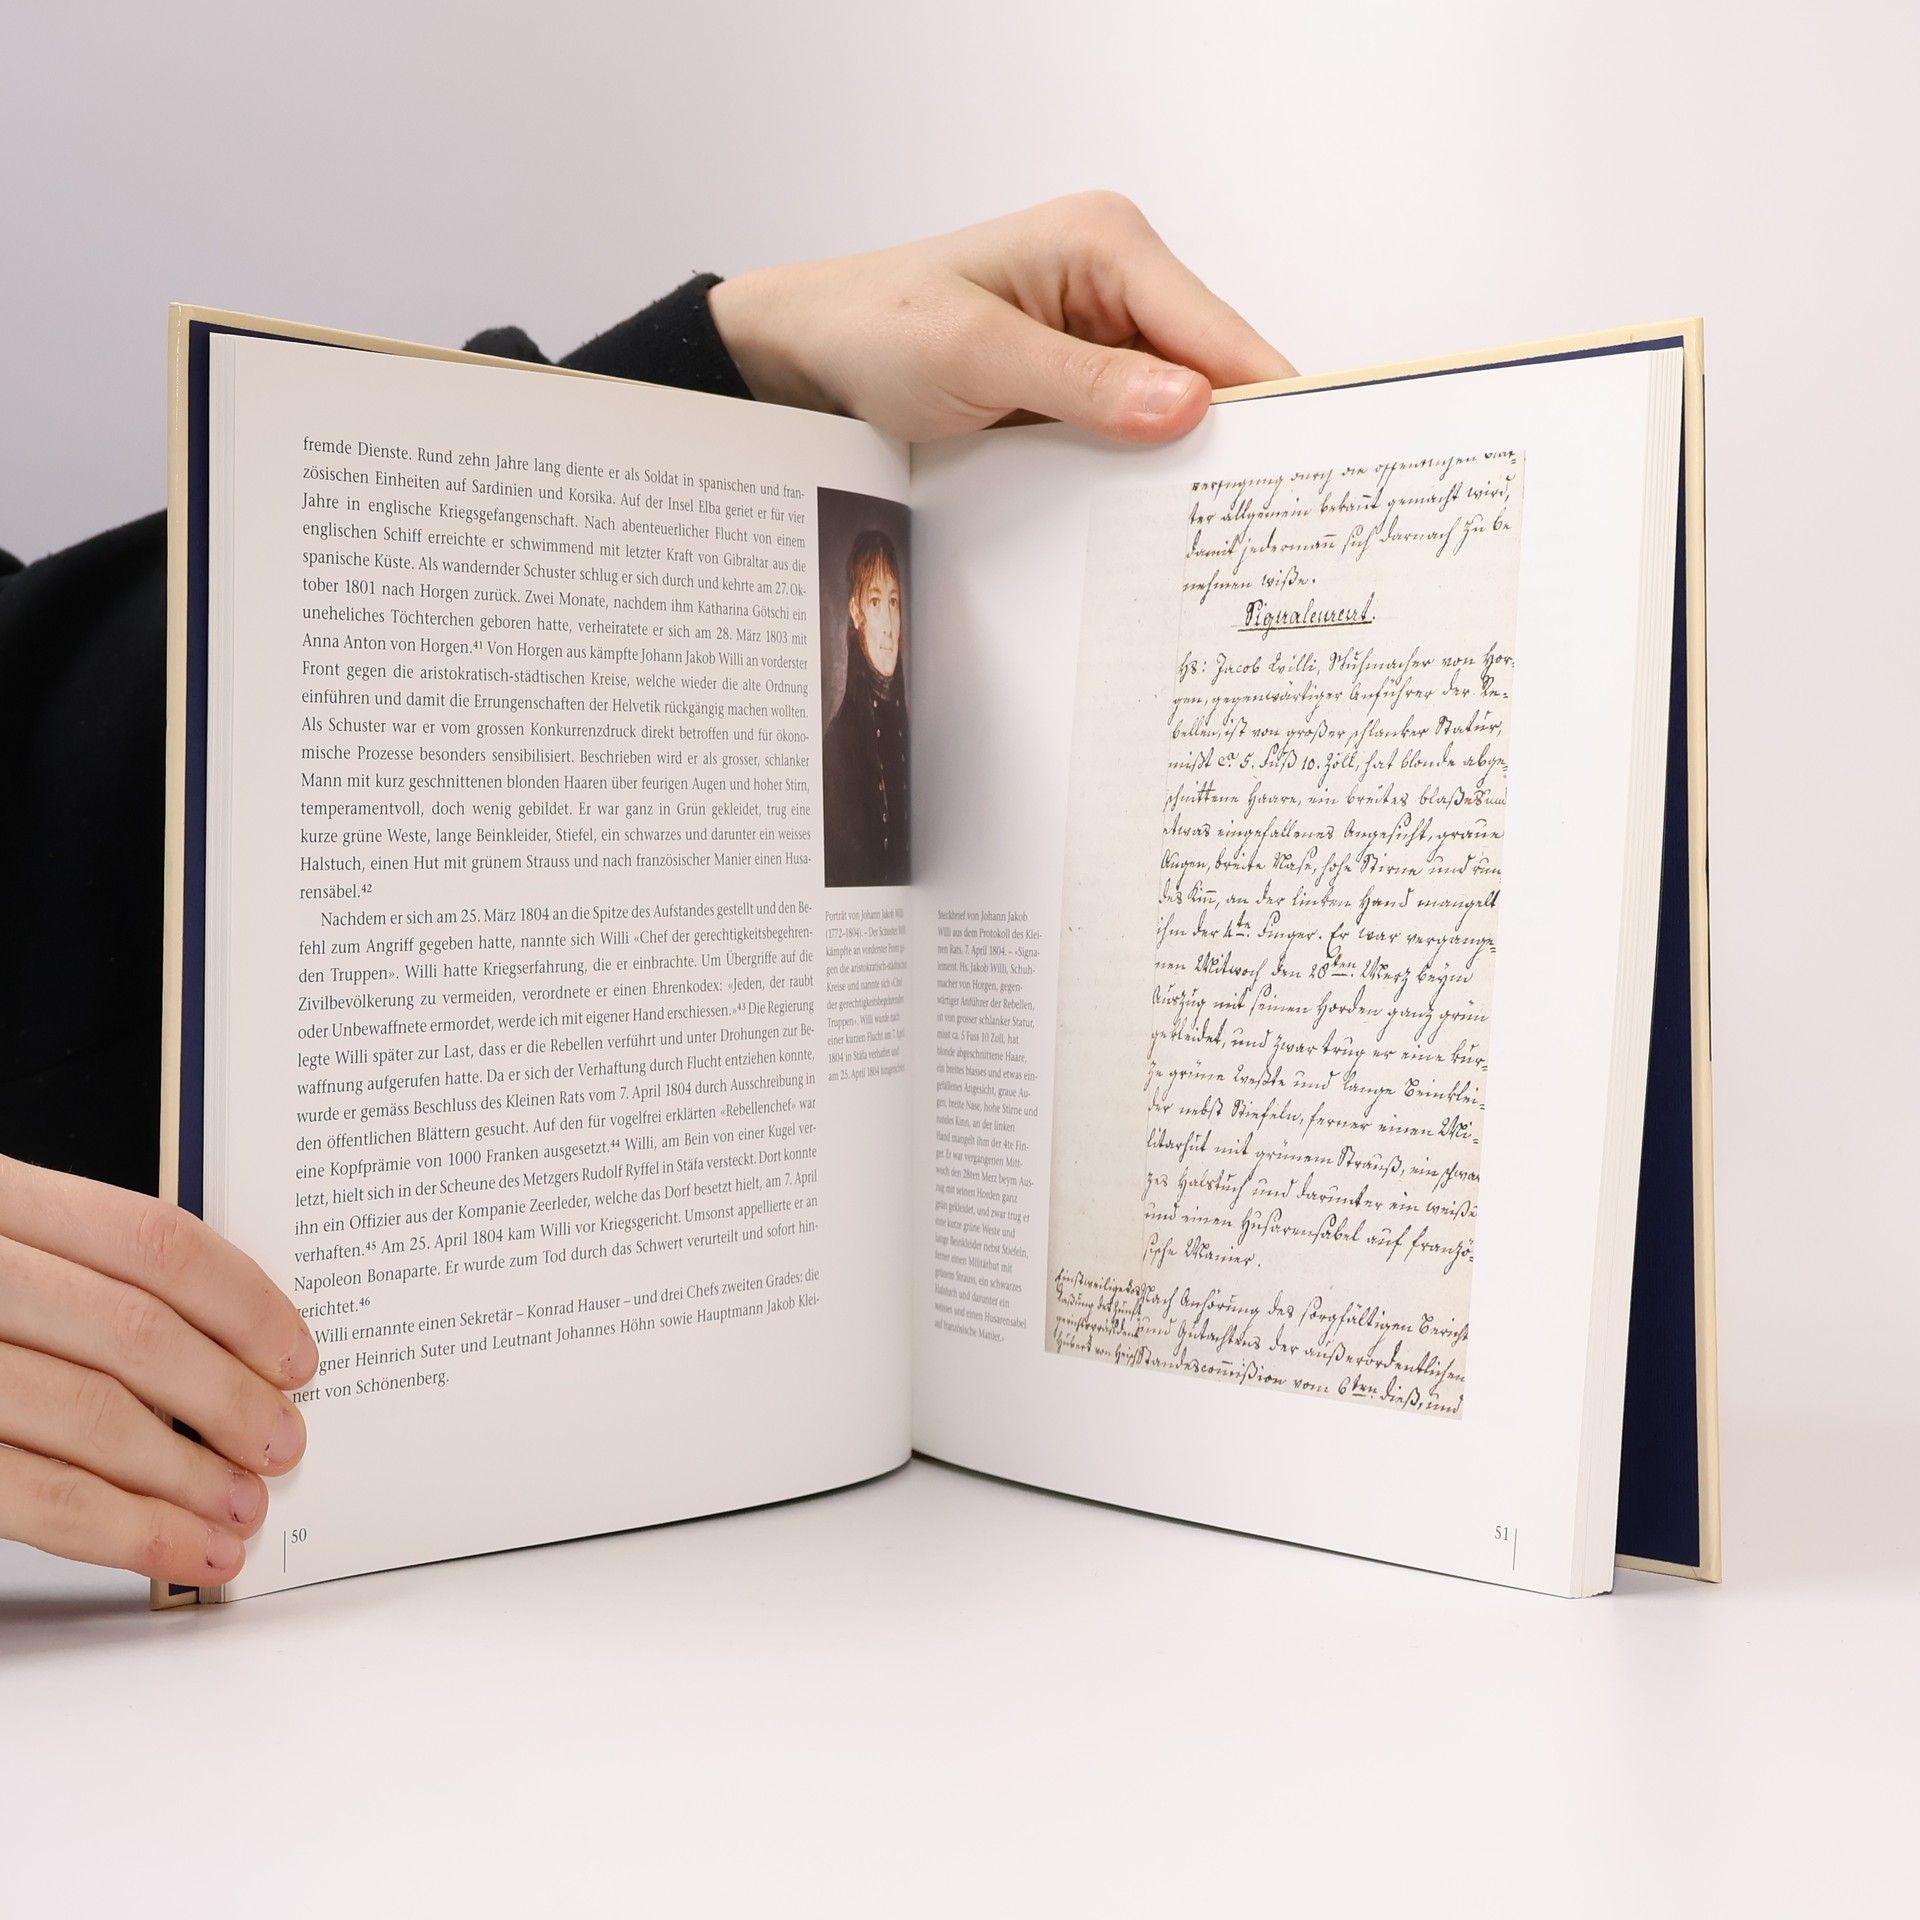 fremde Dienste. Rund zehn Jahre lang diente er als Soldat in spanischen und fran-
zösischen Einheiten auf Sardinien und Korsika. Auf der Insel Elba geriet er für vier
Jahre in englische Kriegsgefangenschaft. Nach abenteuerlicher Flucht von einem
englischen Schiff erreichte er schwimmend mit letzter Kraft von Gibraltar aus die
spanische Küste. Als wandernder Schuster schlug er sich durch und kehrte am 27. Ok-
tober 1801 nach Horgen zurück. Zwei Monate, nachdem ihm Katharina Götschi ein
uneheliches Töchterchen geboren hatte, verheiratete er sich am 28. März 1803 mit
Anna Anton von Horgen.⁴¹ Von Horgen aus kämpfte Johann Jakob Willi an vorderster
Front gegen die aristokratisch-städtischen Kreise, welche wieder die alte Ordnung
einführen und damit die Errungenschaften der Helvetik rückgängig machen wollten.
Als Schuster war er vom grossen Konkurrenzdruck direkt betroffen und für ökono-
mische Prozesse besonders sensibilisiert. Beschrieben wird er als grosser, schlanker
Mann mit kurz geschnittenen blonden Haaren über feurigen Augen und hoher Stirn,
temperamentvoll, doch wenig gebildet. Er war ganz in Grün gekleidet, trug eine
kurze grüne Weste, lange Beinkleider, Stiefel, ein schwarzes und darunter ein weisses
Halstuch, einen Hut mit grünem Strauss und nach französischer Manier einen Husa-
rensäbel.⁴²
Nachdem er sich am 25. März 1804 an die Spitze des Aufstandes gestellt und den Be-
fehl zum Angriff gegeben hatte, nannte sich Willi «Chef der gerechtigkeitsbegehren-
den Truppen». Willi hatte Kriegserfahrung, die er einbrachte. Um Übergriffe auf die
Zivilbevölkerung zu vermeiden, verordnete er einen Ehrenkodex: «Jeden, der raubt
oder Unbewaffnete ermordet, werde ich mit eigener Hand erschiessen.»⁴³ Die Regierung
legte Willi später zur Last, dass er die Rebellen verführt und unter Drohungen zur Be-
waffnung aufgerufen hatte. Da er sich der Verhaftung durch Flucht entziehen konnte,
wurde er gemäss Beschluss des Kleinen Rats vom 7. April 1804 durch Ausschreibung in
den öffentlichen Blättern gesucht. Auf den für vogelfrei erklärten «Rebellenchef» war
eine Kopfprämie von 1000 Franken ausgesetzt.⁴⁴ Willi, am Bein von einer Kugel ver-
letzt, hielt sich in der Scheune des Metzgers Rudolf Ryffel in Stäfa versteckt. Dort konnte
ihn ein Offizier aus der Kompanie Zeerleder, welche das Dorf besetzt hielt, am 7. April
verhaften.⁴⁵ Am 25. April 1804 kam Willi vor Kriegsgericht. Umsonst appellierte er an
Napoleon Bonaparte. Er wurde zum Tod durch das Schwert verurteilt und sofort hin-
gerichtet.⁴⁶
Willi ernannte einen Sekretär – Konrad Hauser – und drei Chefs zweiten Grades: die
gner Heinrich Suter und Leutnant Johannes Höhn sowie Hauptmann Jakob Klei-
nert von Schönenberg.
50
Porträt von Johann Jakob Willi
(1772–1804). – Der Schuster Willi
kämpfte an vorderster Front ge-
gen die aristokratisch-städtischen
Kreise und nannte sich «Chef
der gerechtigkeitsbegehrenden
Truppen». Willi wurde nach
einer kurzen Flucht am 7. April
1804 in Stäfa verhaftet und
am 25. April 1804 hingerichtet.
Steckbrief von Johann Jakob
Willi aus dem Protokoll des Klei-
nen Rats, 7. April 1804. – «Signa-
lement. Hs. Jakob Willi, Schuh-
macher von Horgen, gegen-
wärtiger Anführer der Rebellen,
ist von grosser schlanker Statur,
misst ca. 5 Fuss 10 Zoll, hat
blonde abgeschnittene Haare,
ein breites blasses und etwas ein-
gefallenes Angesicht, graue Au-
gen, breite Nase, hohe Stirne und
rundes Kinn, an der linken
Hand mangelt ihm der 4te Fin-
ger. Er war vergangenen Mitt-
woch den 28ten Merz beym Aus-
zug mit seinen Horden ganz
grün gekleidet, und zwar trug er
eine kurze grüne Weste und
lange Beinkleider nebst Stiefeln,
ferner einen Militärhut mit
grünem Strauss, ein schwarzes
Halstuch und darunter ein
weisses und einen Husarensabel
auf französische Manier.»
Verfügung durch die öffentlichen Blät-
ter allgemein bekannt gemacht wird,
damit jedermann sich darnach zu be
nehmen wiße.
Signalement.
Hs: Jacob Willi, Schuhmacher von Hor-
gen, gegenwärtiger Anführer der Re-
bellen, ist von großer schlanker Statur,
mißt ca. 5. Fuß 10. Zoll, hat blonde abge-
schnittene Haare, ein breites blaßes und
etwas eingefallenes Angesicht, graue
Augen, breite Nase, hohe Stirne und run
des Kinn, an der linken Hand mangelt
ihm der 4te. Finger. Er war vergange-
nen Mitwoch den 28ten. Merz beym
Auszug mit seinen Horden ganz grün
gekleidet, und zwar trug er eine kur-
ze grüne Weste und lange Beinklei-
der nebst Stiefeln, ferner einen Mi-
litarhut mit grünem Strauß, ein schwar
zes Halstuch und darunter ein weißes
und einen Husarensabel auf franzö-
sische Manier.
Einstweilige
des Zunft
gerichtspräsident
Hubert von
Nach Anhörung des sorgfältigen Bericht
und Gutachtens der außerordentlichen
Standescommißion vom 6ten. dieß, und
51